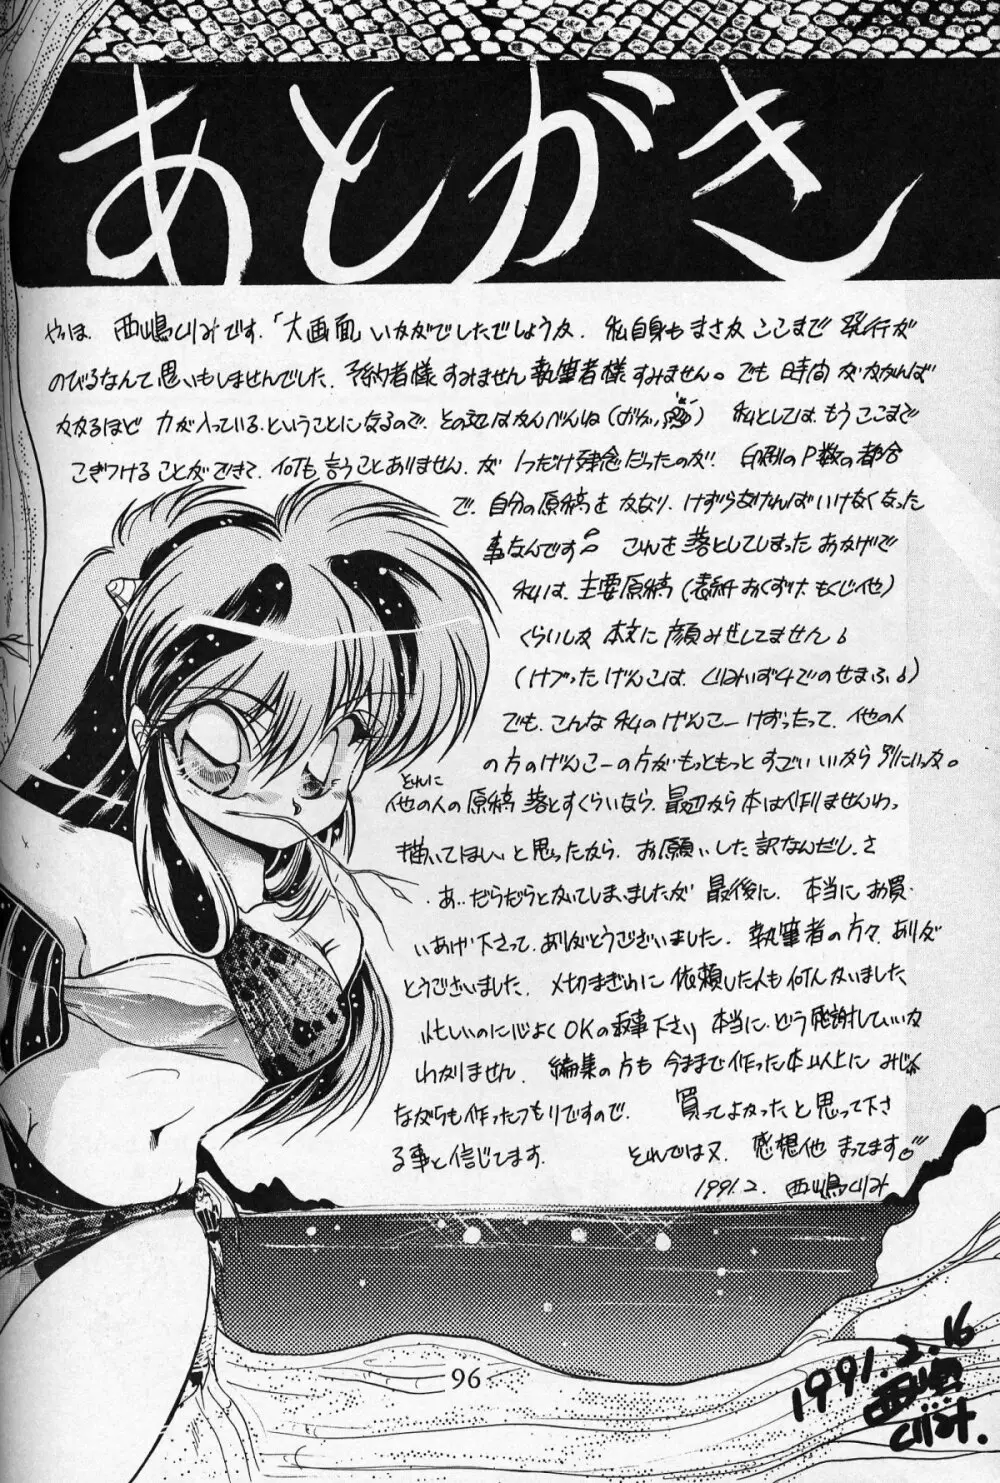 あとがき
やっほ 西嶋くりみです。「大画面」いかがでしたでしょうか。 私自身もまさか ここまで 発行が
のびるなんて思いもしませんでした。予約者様すみません 執筆者様すみません。でも 時間がかかれば
かかるほど 力が入っている、ということになるので、その辺はかんべんね 私としては、もうここまで
こぎつけることができて、何も言うことありません。が 1つだけ残念だったのが!! 印刷のP数の都合
で、自分の原稿を かなり、けずらなければいけなくなった
事なんです これを落としてしまったおかげで
私は、主要原稿(表紙 おくずけ もくじ他)
くらいしか 本文に 顔みせしてません
(けずったげんこは、 でのせまふ)
でも、こんな 私のげんこーけずったって、他の人
の方のげんこーの方がもっともっと すごいいから 別にいっか。
とれに
他の人の原稿 落とすくらいなら、最初から本は作りませんわ、
描いてほしいと思ったから、お願いした訳なんだし、さ
あ‥だらだらとかいてしまいましたが 最後に、本当にお買
いあげ下さって、ありがとうございました。執筆者の方々、ありが
とうございました。〆切まぎわに 依頼した人も何人かいました
忙しいのに心よくOKの返事下さり 本当に、どう感謝していいか
わかりません。 編集の方も 今まで作った本以上に みじゅく
ながらも作ったつもりですので、 買ってよかったと思って下さ
る事と信じてます。 それでは又、感想他 まってます。
1991.2. 西嶋くりみ
96
1991.2.16
西嶋
くりみ.